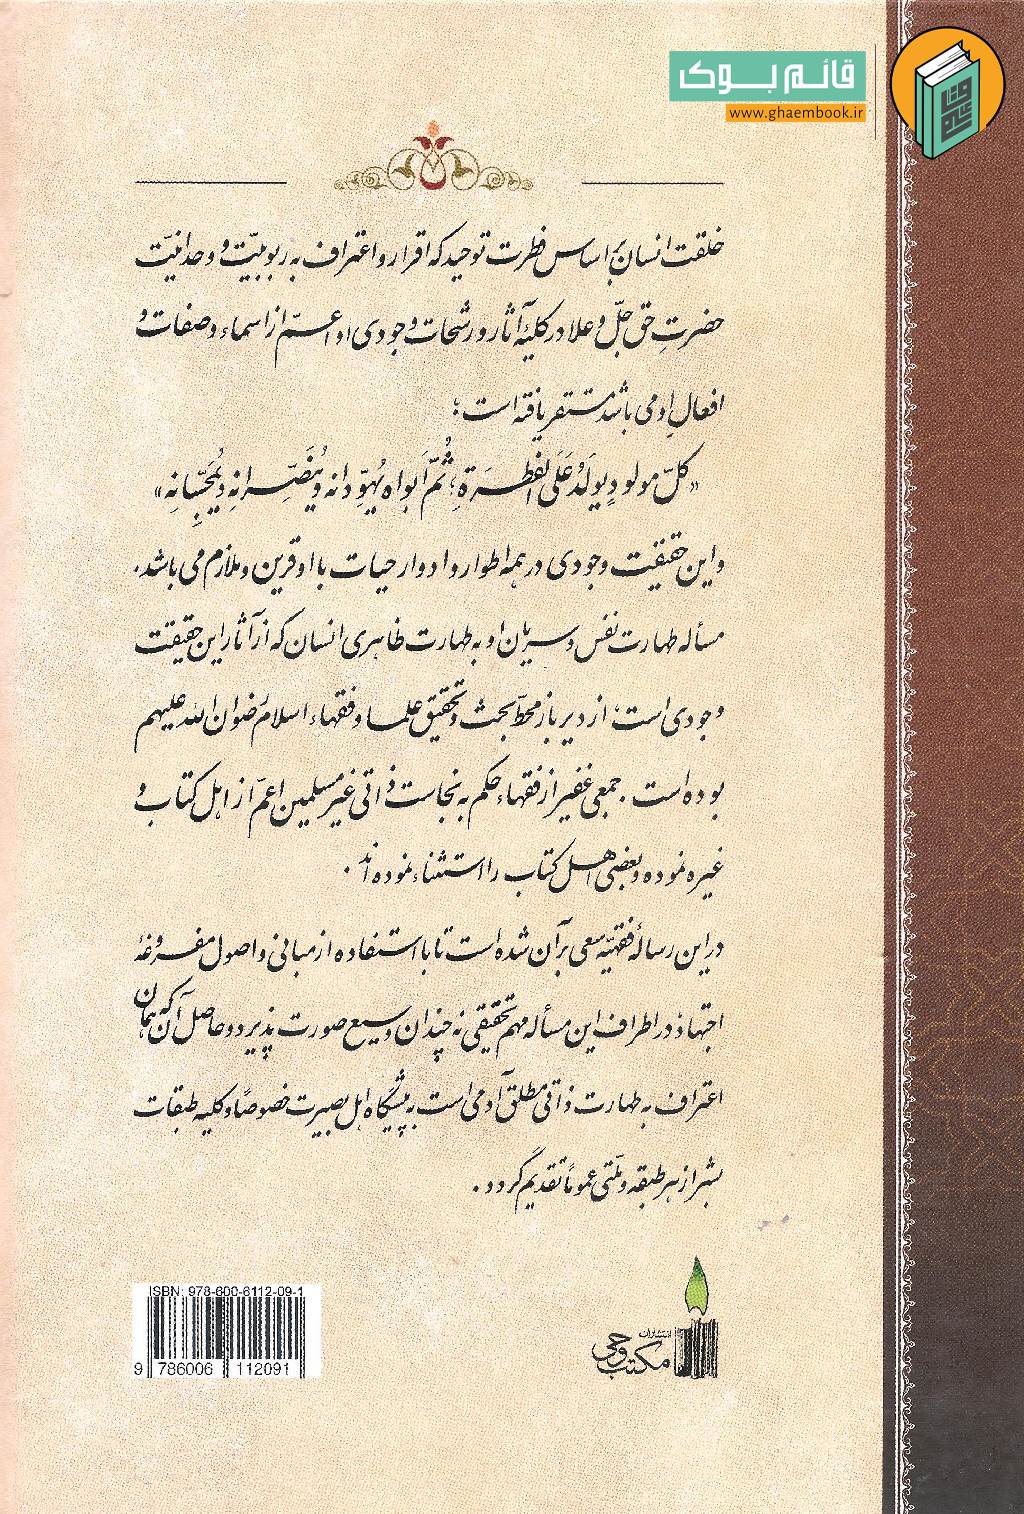 قائم بوک
www.ghaembook.ir
خلقت انسان بر اساس فطرت توحید که اقرار و اعتراف به ربوبیّت و وحدانیّت
حضرتِ حق جلّ و علا در کلیۀ آثار و رشحات وجودی او اعمّ از اسماء و صفات و
افعالِ او می باشد مستقر یافته است؛
«کلّ مولودٍ یولَدُ عَلَی الفِطرَةِ؛ ثُمّ أبواه یُهوِّدانه و یُنَصِّرانِهِ و یُمَجِّسانِهِ»
و این حقیقت وجودی در همه اطوار و ادوار حیات با او قرین و ملازم می باشد.
مسأله طهارت نفس و سریان او به طهارت ظاهری انسان که از آثار این حقیقت
وجودی است؛ از دیر باز محطّ بحث و تحقیق علما و فقهاء اسلام رضوان الله علیهم
بوده است. جمعی غفیر از فقهاء حکم به نجاست ذاتی غیر مسلمین اعمّ از اهل کتاب و
غیره نموده و بعضی اهل کتاب را استثناء نموده اند.
در این رسالۀ فقهیّه سعی بر آن شده است تا با استفاده از مبانی و اصول مفروغۀ
اجتهاد در اطراف این مسأله مهم تحقیقی نه چندان وسیع صورت پذیرد و حاصل آن که همان
اعتراف به طهارت ذاتی مطلق آدمی است به پیشگاه اهل بصیرت خصوصاً و کلیه طبقات
بشر از هر طبقه و ملّتی عموماً تقدیم گردد.
ISBN: 978-600-6112-09-1
9 786006 112091
انتشارات
مکتب وحی